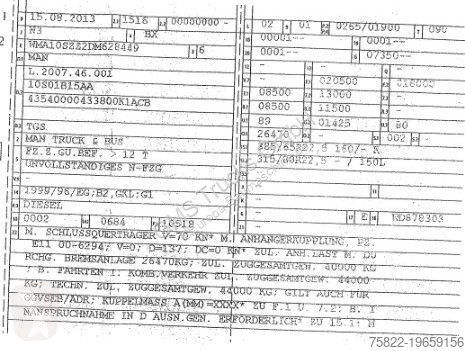 15.08.2013 1516 00000000 -
N3 BX
WMA10SZZ2DM628449 6
MAN
L.2007.46.001
10S01B15AA
43540000433800K1ACB
TGS
MAN TRUCK & BUS
FZ.Z.GU.BEF. > 12 T
UNVOLLSTÄNDIGES N-FZG
-
1999/96/EG;B2,GKL:G1
DIESEL
0002 0684 10518
02 01 0265/01900 090
00001-- 0001--
0001-- 07350--
- - -
- 020500 018000
08500 13000 -
08500 11500 -
89 01425 80
26470 002 -
385/65R22,5 160/- K
315/80R22,5 - / 150L
-
- - -
17 E ND878303
M. SCHLUSSQUERTRÄGER V=70 KN* M. ANHÄNGERKUPPLUNG, PZ.
E11 00-6294; V=0; D=137; DC=0 KN* ZUL. ANH.LAST M.DU
RCHG. BREMSANLAGE 26470KG; ZUL. ZUGGESAMTGEW. 40000 KG
/ B. FAHRTEN I. KOMB.VERKEHR ZUL. ZUGGESAMTGEW. 44000
KG; TECHN. ZUL. ZUGGESAMTGEW. 44000 KG; GILT AUCH FÜR
GGVSEB/ADR; KUPPELMASS A(MM)=XXXX* ZU F.1 U. 7.2: B. I
NANSPRUCHNAHME IN D AUSN.GEN. ERFORDERLICH* ZU 15.1: M
75822-19659156